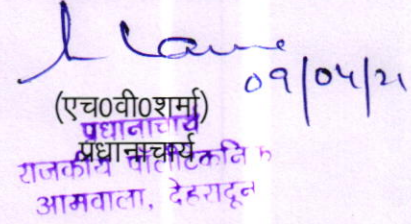 09/04/21
(एच0वी0शर्मा)
प्रधानाचार्य
प्रधानाचार्य
राजकीय पालीटेकनिक
आमवाला, देहरादून